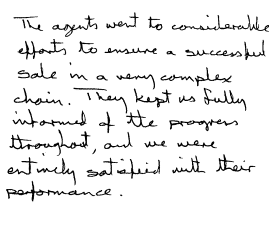 The agents went to considerable
efforts to ensure a successful
sale in a very complex
chain. They kept us fully
informed of the progress
throughout, and we were
entirely satisfied with their
performance.